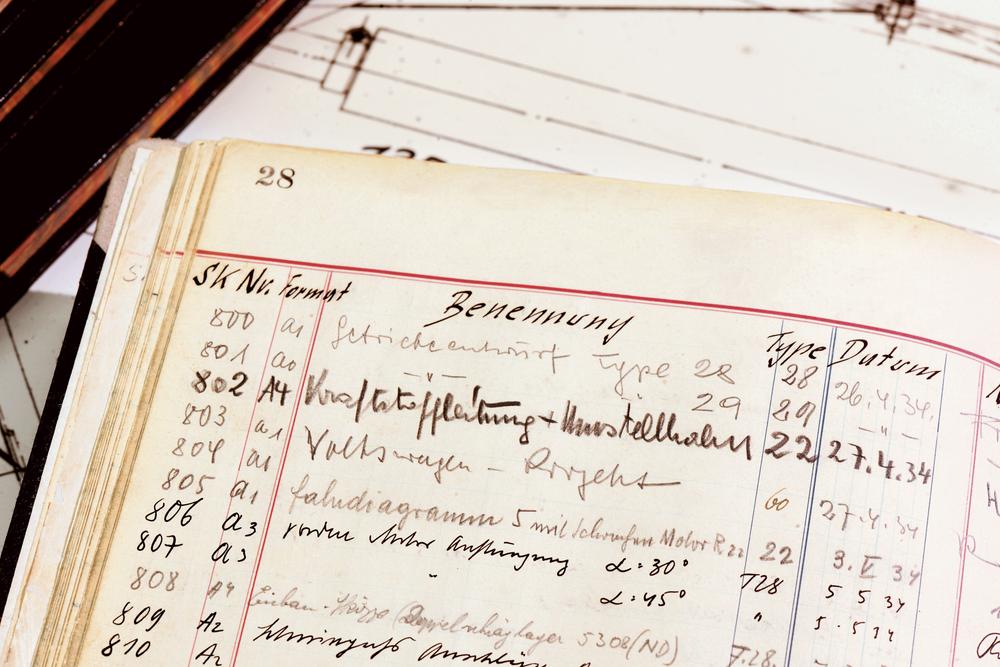 28
SK Nr. Format Benennung Type Datum
800 a1 Getriebeentwurf Type 28 28 26.4.34.
801 a0 -"- 29 29 -"-
802 A4 Kraftstoffleitung + Umstellhahn 22 27.4.34
803 a1 Volkswagen - Projekt 60 27.4.34
804 a1
805 a1 Fahrdiagramm 5 mit Motor R22 22 3. V 34
806 a3 vordere Motor α = 30° T28 5 5 34
807 a3 " α = 45° " 5.5 34
808 A4 Einbau-Skizze (Doppelschräglager 5308 (ND) T.28.
809 A2
810 A2